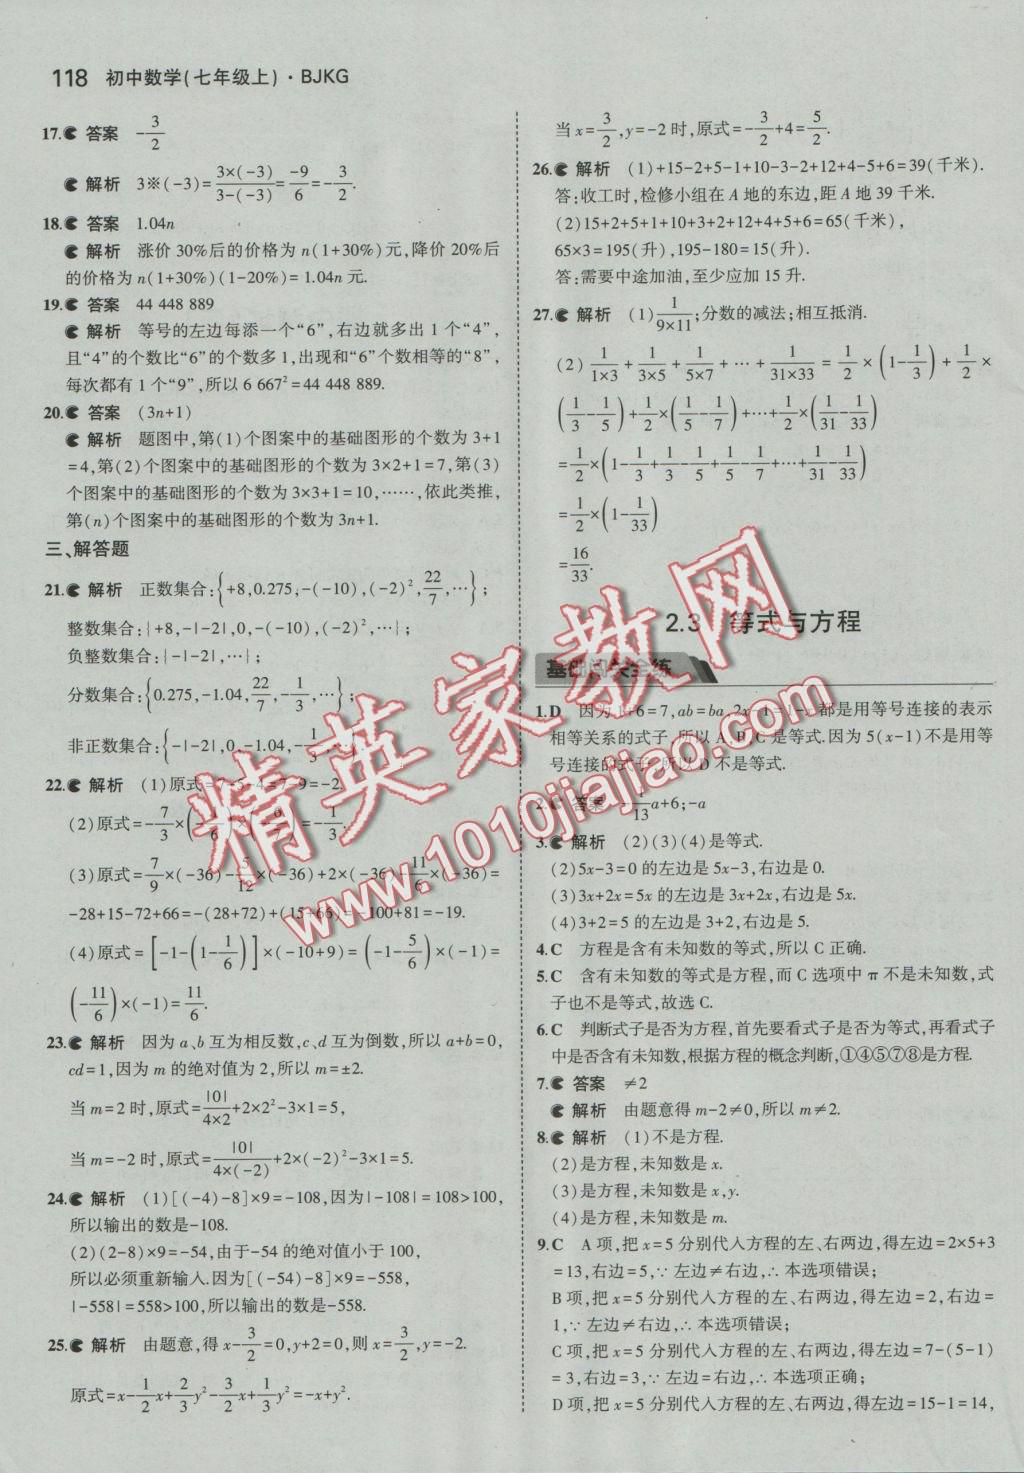 118 初中数学(七年级上)·BJKG
17. 答案 -3/2
解析 3※(-3)=3×(-3)/3-(-3)=-9/6=-3/2.
18. 答案 1.04n
解析 涨价30%后的价格为n(1+30%)元,降价20%后
的价格为n(1+30%)(1-20%)=1.04n元.
19. 答案 44 448 889
解析 等号的左边每添一个“6”,右边就多出1个“4”,
且“4”的个数比“6”的个数多1,出现和“6”个数相等的“8”,
每次都有1个“9”,所以6 667²=44 448 889.
20. 答案 (3n+1)
解析 题图中,第(1)个图案中的基础图形的个数为3+1
=4,第(2)个图案中的基础图形的个数为3×2+1=7,第(3)
个图案中的基础图形的个数为3×3+1=10,……,依此类推,
第(n)个图案中的基础图形的个数为3n+1.
三、解答题
21. 解析 正数集合:{+8,0.275,-(-10),(-2)²,22/7,…};
整数集合:{+8,-|-2|,0,-(-10),(-2)²,…};
负整数集合:{-|-2|,…};
分数集合:{0.275,-1.04,22/7,-1/3,…};
非正数集合:{-|-2|,0,-1.04,-1/3,…}.
22. 解析 (1)原式=7-5-4=7-9=-2.
(2)原式=-7/3×(-1/6)×
=-1/3.
(3)原式=7/9×(-36)-5/12×(-36)+2×(-36)-11/6×(-36)=
-28+15-72+66=-(28+72)+(15+66)=-100+81=-19.
(4)原式=[-1-(1-1/6)]×(-10+9)=(-1-5/6)×(-1)=
(-11/6)×(-1)=11/6.
23. 解析 因为a、b互为相反数,c、d互为倒数,所以a+b=0,
cd=1,因为m的绝对值为2,所以m=±2.
当m=2时,原式=|0|/4×2+2×2²-3×1=5,
当m=-2时,原式=|0|/4×(-2)+2×(-2)²-3×1=5.
24. 解析 (1)[(-4)-8]×9=-108,因为|-108|=108>100,
所以输出的数是-108.
(2)(2-8)×9=-54,由于-54的绝对值小于100,
所以必须重新输入.因为[(-54)-8]×9=-558,
|-558|=558>100,所以输出的数是-558.
25. 解析 由题意,得x-3/2=0,y+2=0,则x=3/2,y=-2.
原式=x-1/2x+2/3y²-3/2x+1/3y²=-x+y².
当x=3/2,y=-2时,原式=-3/2+4=5/2.
26. 解析 (1)+15-2+5-1+10-3-2+12+4-5+6=39(千米).
答:收工时,检修小组在A地的东边,距A地39千米.
(2)15+2+5+1+10+3+2+12+4+5+6=65(千米),
65×3=195(升),195-180=15(升).
答:需要中途加油,至少应加15升.
27. 解析 (1)1/9×11;分数的减法;相互抵消.
(2)1/1×3+1/3×5+1/5×7+…+1/31×33=1/2×(1-1/3)+1/2×
(1/3-1/5)+1/2×(1/5-1/7)+…+1/2×(1/31-1/33)
=1/2×(1-1/3+1/3-1/5+1/5-1/7+…+1/31-1/33)
=1/2×(1-1/33)
=16/33.
2.3 等式与方程
基础闯关全练
1.D 因为1+6=7,ab=ba,2x-1=1- 都是用等号连接的表示
相等关系的式子,所以A、B、C是等式.因为5(x-1)不是用等
号连接的式子,所以D不是等式.
2. 答案 -1/13a+6;-a
3. 解析 (2)(3)(4)是等式.
(2)5x-3=0的左边是5x-3,右边是0.
(3)3x+2x=5x的左边是3x+2x,右边是5x.
(4)3+2=5的左边是3+2,右边是5.
4.C 方程是含有未知数的等式,所以C正确.
5.C 含有未知数的等式是方程,而C选项中π不是未知数,式
子也不是等式,故选C.
6.C 判断式子是否为方程,首先要看式子是否为等式,再看式子
中是否含有未知数,根据方程的概念判断,①④⑤⑦⑧是方程.
7. 答案 ≠2
解析 由题意得m-2≠0,所以m≠2.
8. 解析 (1)不是方程.
(2)是方程,未知数是x.
(3)是方程,未知数是x,y.
(4)是方程,未知数是m.
9.C A项,把x=5分别代入方程的左、右两边,得左边=2×5+3
=13,右边=5,∵左边≠右边,∴本选项错误;
B项,把x=5分别代入方程的左、右两边,得左边=2,右边=
1,∵左边≠右边,∴本选项错误;
C项,把x=5分别代入方程的左、右两边,得左边=7-(5-1)
=3,右边=3,∵左边=右边,∴本选项正确;
D项,把x=5分别代入方程的左、右两边,得左边=15-1=14,
精英家教网
www.1010jiajiao.com